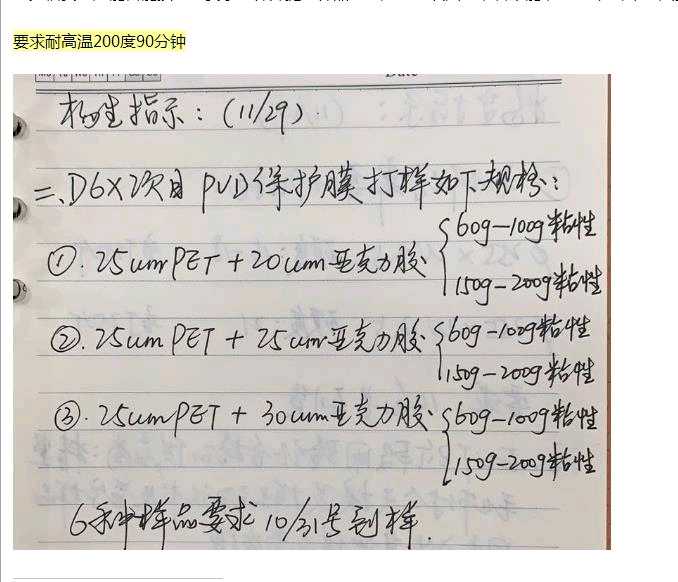 要求耐高温200度90分钟
Date
杨生指示：(11/29)
二、D6X2项目 PVD保护膜打样如下规格：
①. 25um PET + 20um亚克力胶
60g-100g粘性
150g-200g粘性
②. 25um PET + 25um亚克力胶
60g-100g粘性
150g-200g粘性
③. 25um PET + 30um亚克力胶
60g-100g粘性
150g-200g粘性
6种样品要求10/31号到样.